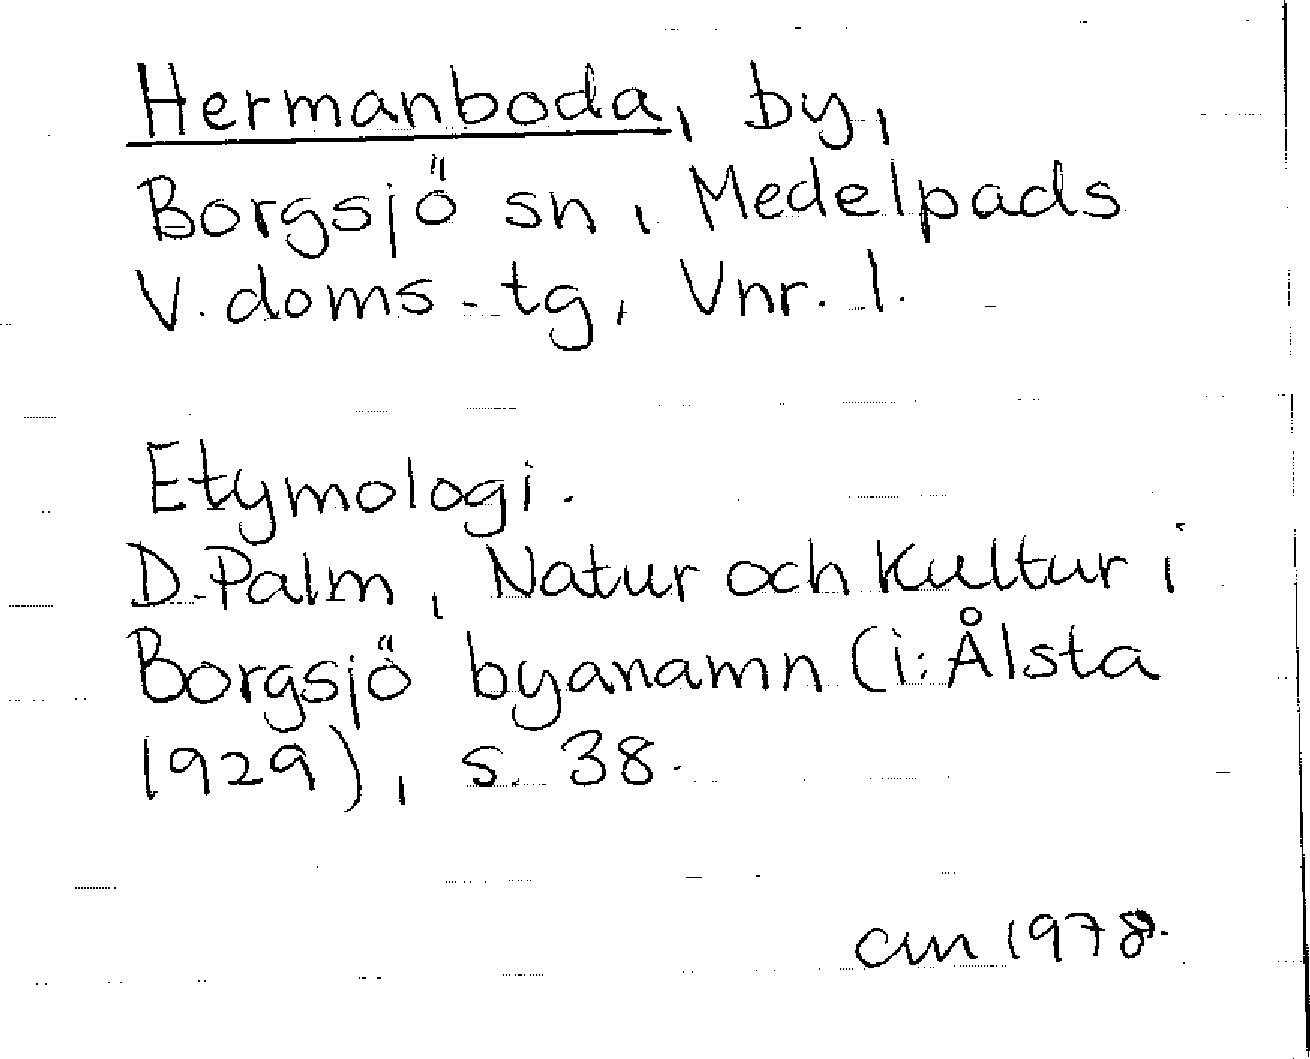 Hermanboda, by,
Borgsjö sn, Medelpads
V. doms-tg, Vnr. 1.
Etymologi.
D. Palm, Natur och Kultur i
Borgsjö byanamn (i: Ålsta
1929), s. 38.
am 1978.